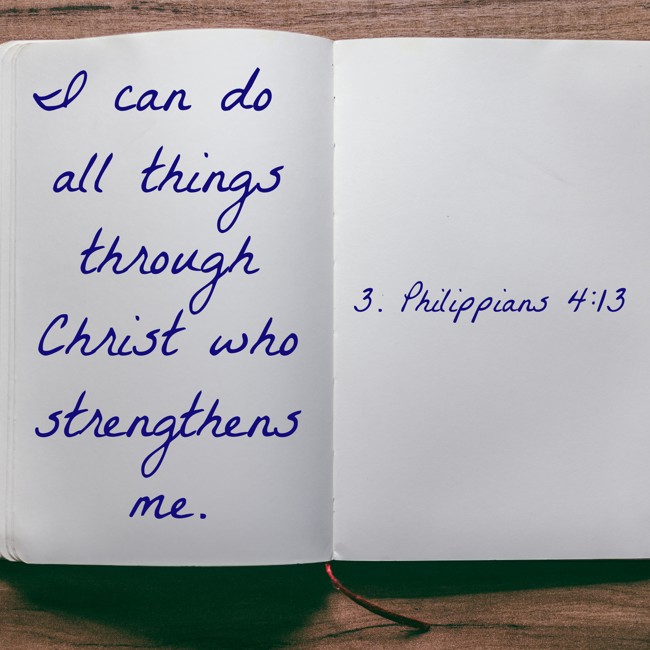 I can do
all things
through
Christ who
strengthens
me.
3. Philippians 4:13